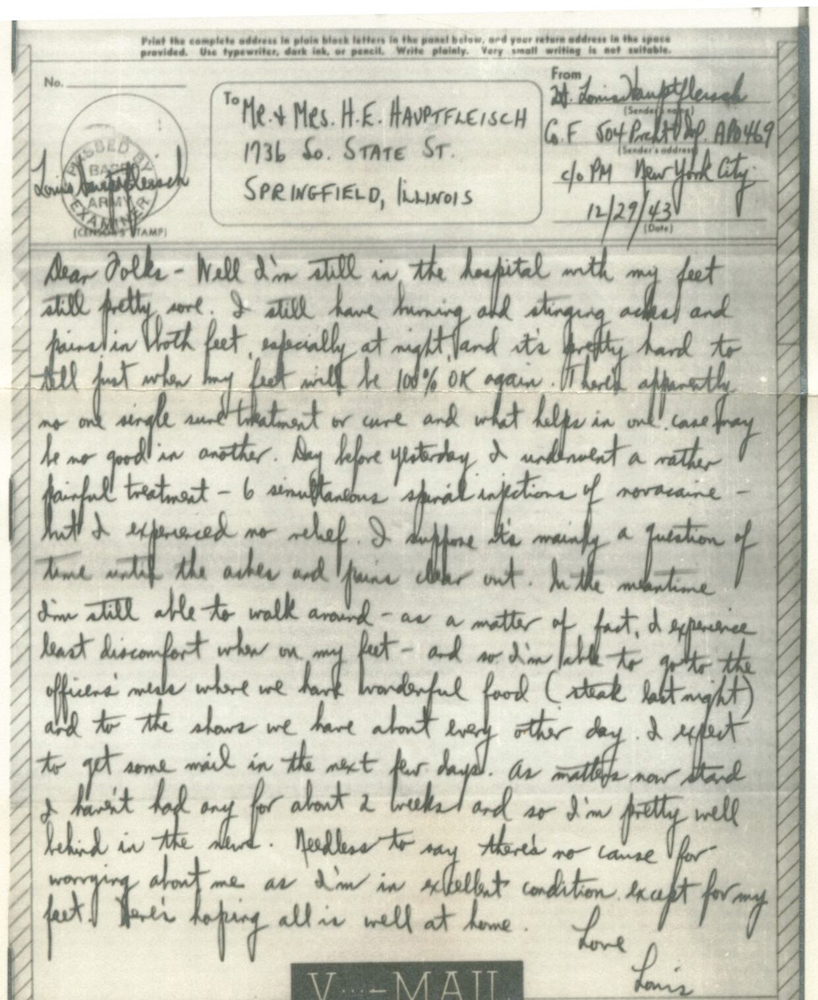 Print the complete address in plain block letters in the panel below, and your return address in the space
provided. Use typewriter, dark ink, or pencil. Write plainly. Very small writing is not suitable.
No.
To Mr. & Mrs. H.E. Hauptfleisch
1736 So. State St.
Springfield, Illinois
From
Lt. Louis Hauptfleisch
(Sender's name)
Co. F 504 Prcht Inf. APO 469
(Sender's address)
c/o PM New York City
12/29/43
(Date)
PASSED BY
BASE
ARMY
EXAMINER
Louis Hauptfleisch
(CENSOR'S STAMP)
Dear Folks - Well I'm still in the hospital with my feet
still pretty sore. I still have burning and stinging aches and
pains in both feet, especially at night, and it's pretty hard to
tell just when my feet will be 100% OK again. There's apparently
no one single sure treatment or cure and what helps in one case may
be no good in another. Day before yesterday I underwent a rather
painful treatment - 6 simultaneous spinal injections of novacaine -
but I experienced no relief. I suppose it's mainly a question of
time until the aches and pains clear out. In the meantime
I'm still able to walk around - as a matter of fact, I experience
least discomfort when on my feet - and so I'm able to go to the
officers' mess where we have wonderful food (steak last night)
and to the shows we have about every other day. I expect
to get some mail in the next few days. As matters now stand
I haven't had any for about 2 weeks and so I'm pretty well
behind in the news. Needless to say there's no cause for
worrying about me as I'm in excellent condition except for my
feet. Here's hoping all is well at home.
Love
Louis
V···—MAIL